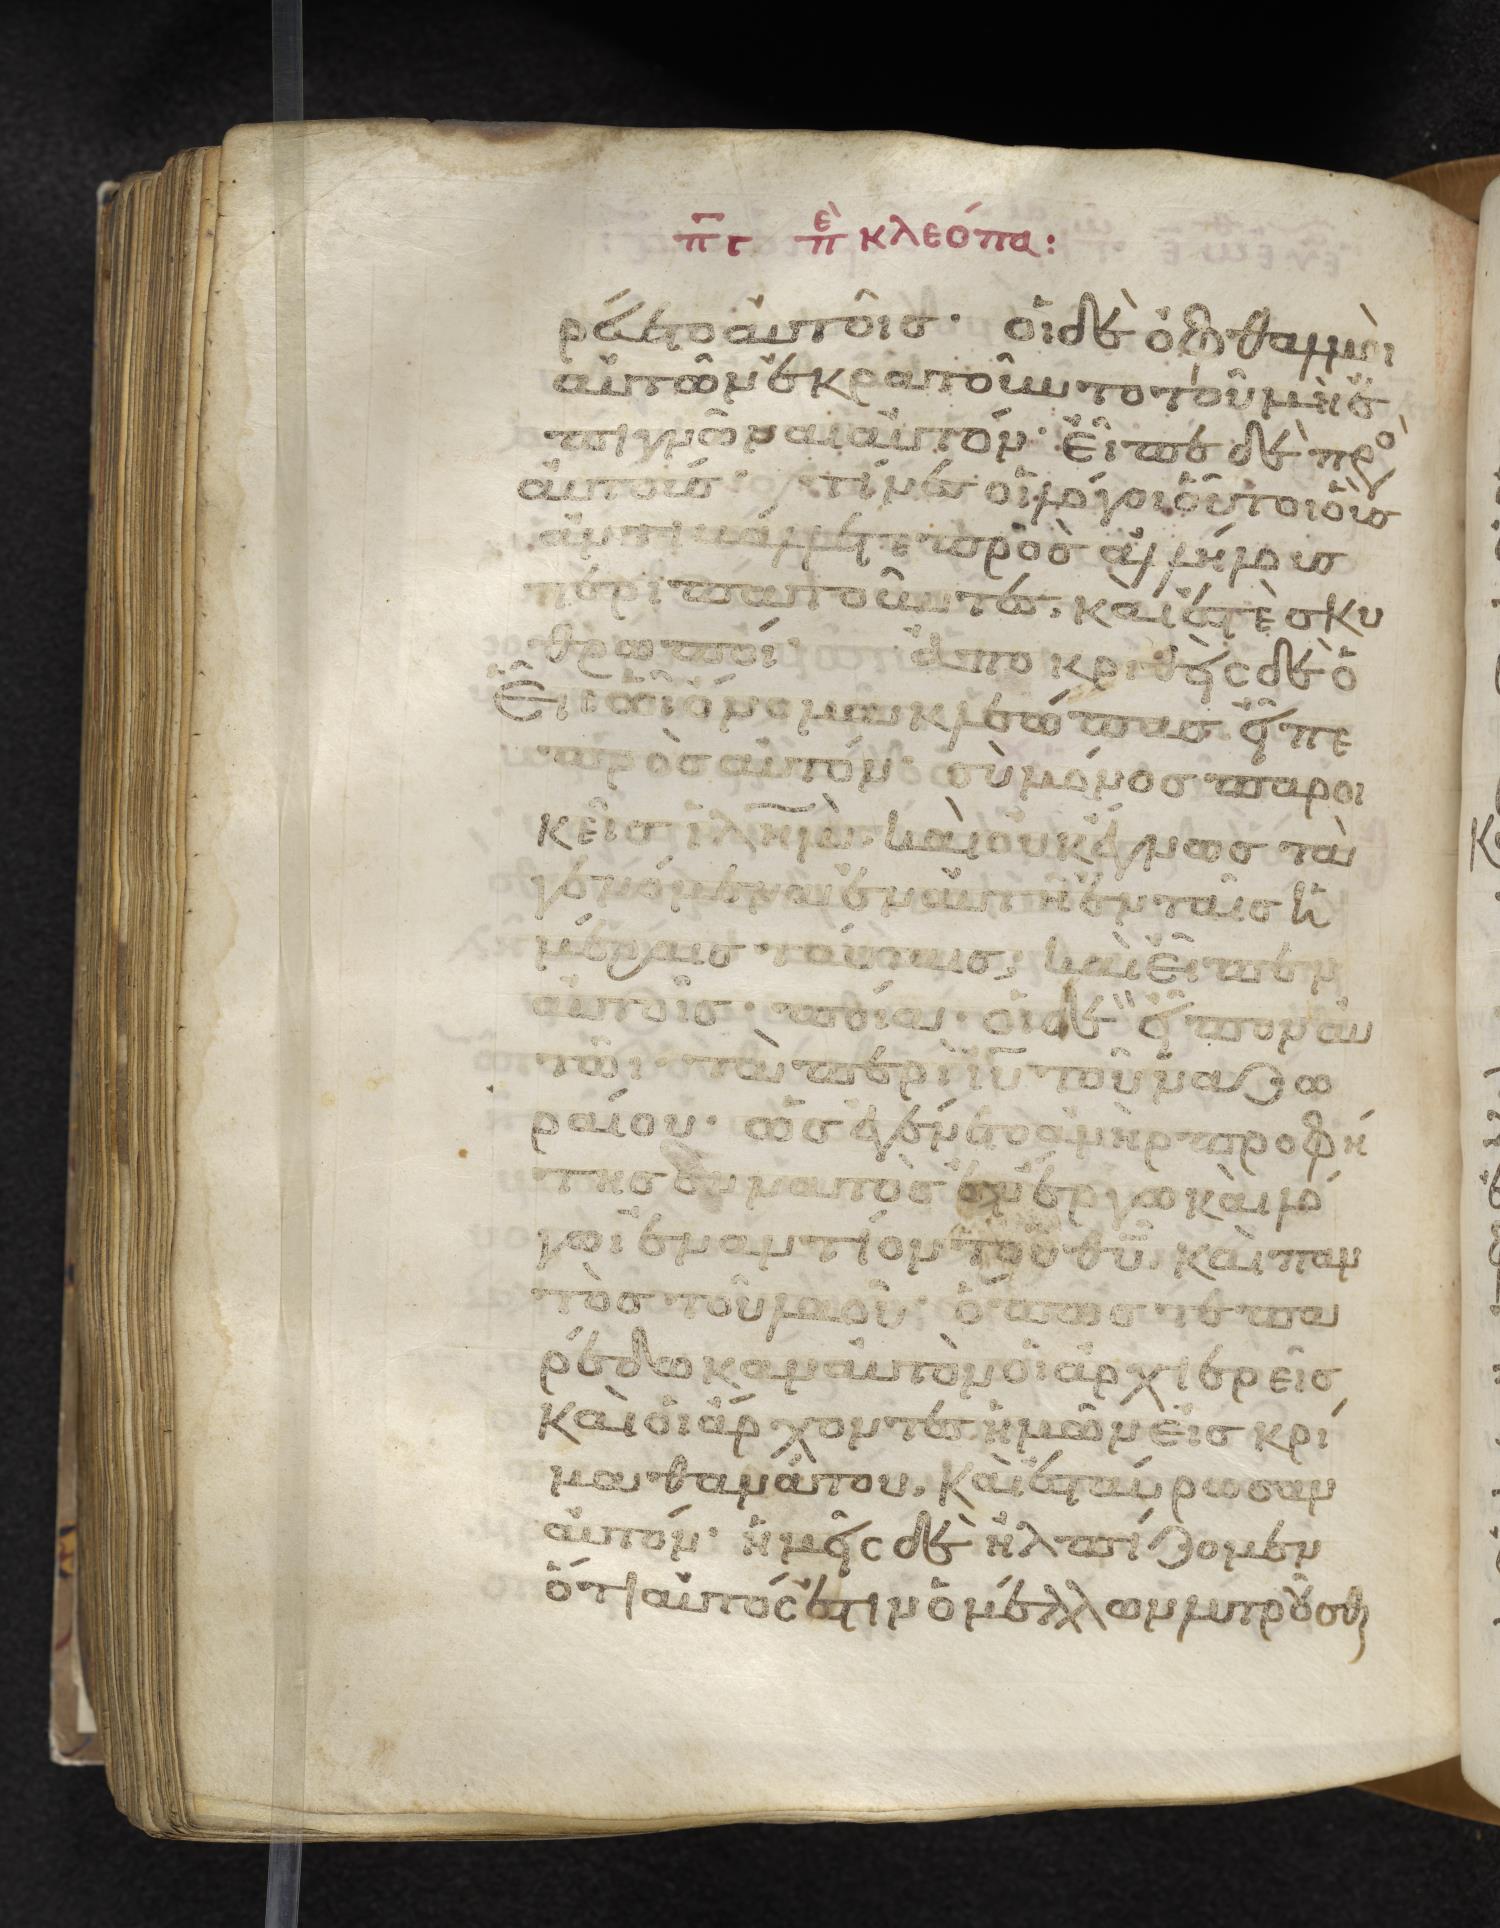 π̅γ ἐπ κλεόπα:
ρεύετο αὐτοῖσ· οἱ δὲ ὀφθαλμοὶ
αὐτῶν ἐκρατοῦντο τοῦ μὴ ἐ
πιγνῶναι αὐτόν· εἶπε δὲ πρὸ
αὐτούς· τίνες οἱ λόγοι οὗτοι οὓσ
ἀντιβάλλετε πρὸσ ἀλλήλουσ
περιπατοῦντες, καὶ ἐστὲ σκυ
θρωποί· ἀποκριθεὶς δὲ ὁ
εἷς ᾧ ὄνομα κλεώπασ εἶπε
πρὸσ αὐτόν· σὺ μόνοσ παροι
κεῖσ ιλημ̅, καὶ οὐκ ἔγνωσ τὰ
γενόμενα ἐν αὐτῇ ἐν ταῖσ ἡ
μέραισ ταύταισ; καὶ εἶπεν
αὐτοῖσ· ποῖα· οἱ δὲ εἶπον αὐ
τῶι· τὰ περὶ ι̅υ̅ τοῦ ναζω
ραίου· ὃσ ἐγένετο ἀνὴρ προφή
τησ δυνατὸσ ἐν ἔργω καὶ λό
γω ἐναντίον τοῦ θ̅υ̅, καὶ παν
τὸσ τοῦ λαοῦ· ὅπωσ τε πα
ρέδωκαν αὐτὸν οἱ ἀρχιερεῖσ
καὶ οἱ ἄρχοντεσ ἡμῶν εἰσ κρί
μα θανάτου, καὶ ἐσταύρωσαν
αὐτόν· ἡμεῖς δὲ ἠλπίζομεν
ὅτι αὐτός ἐστιν ὁ μέλλων λυτροῦσθ